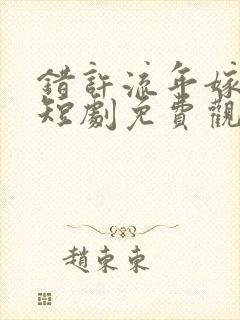 錯許流年嫁
短劇免費觀
趙東東